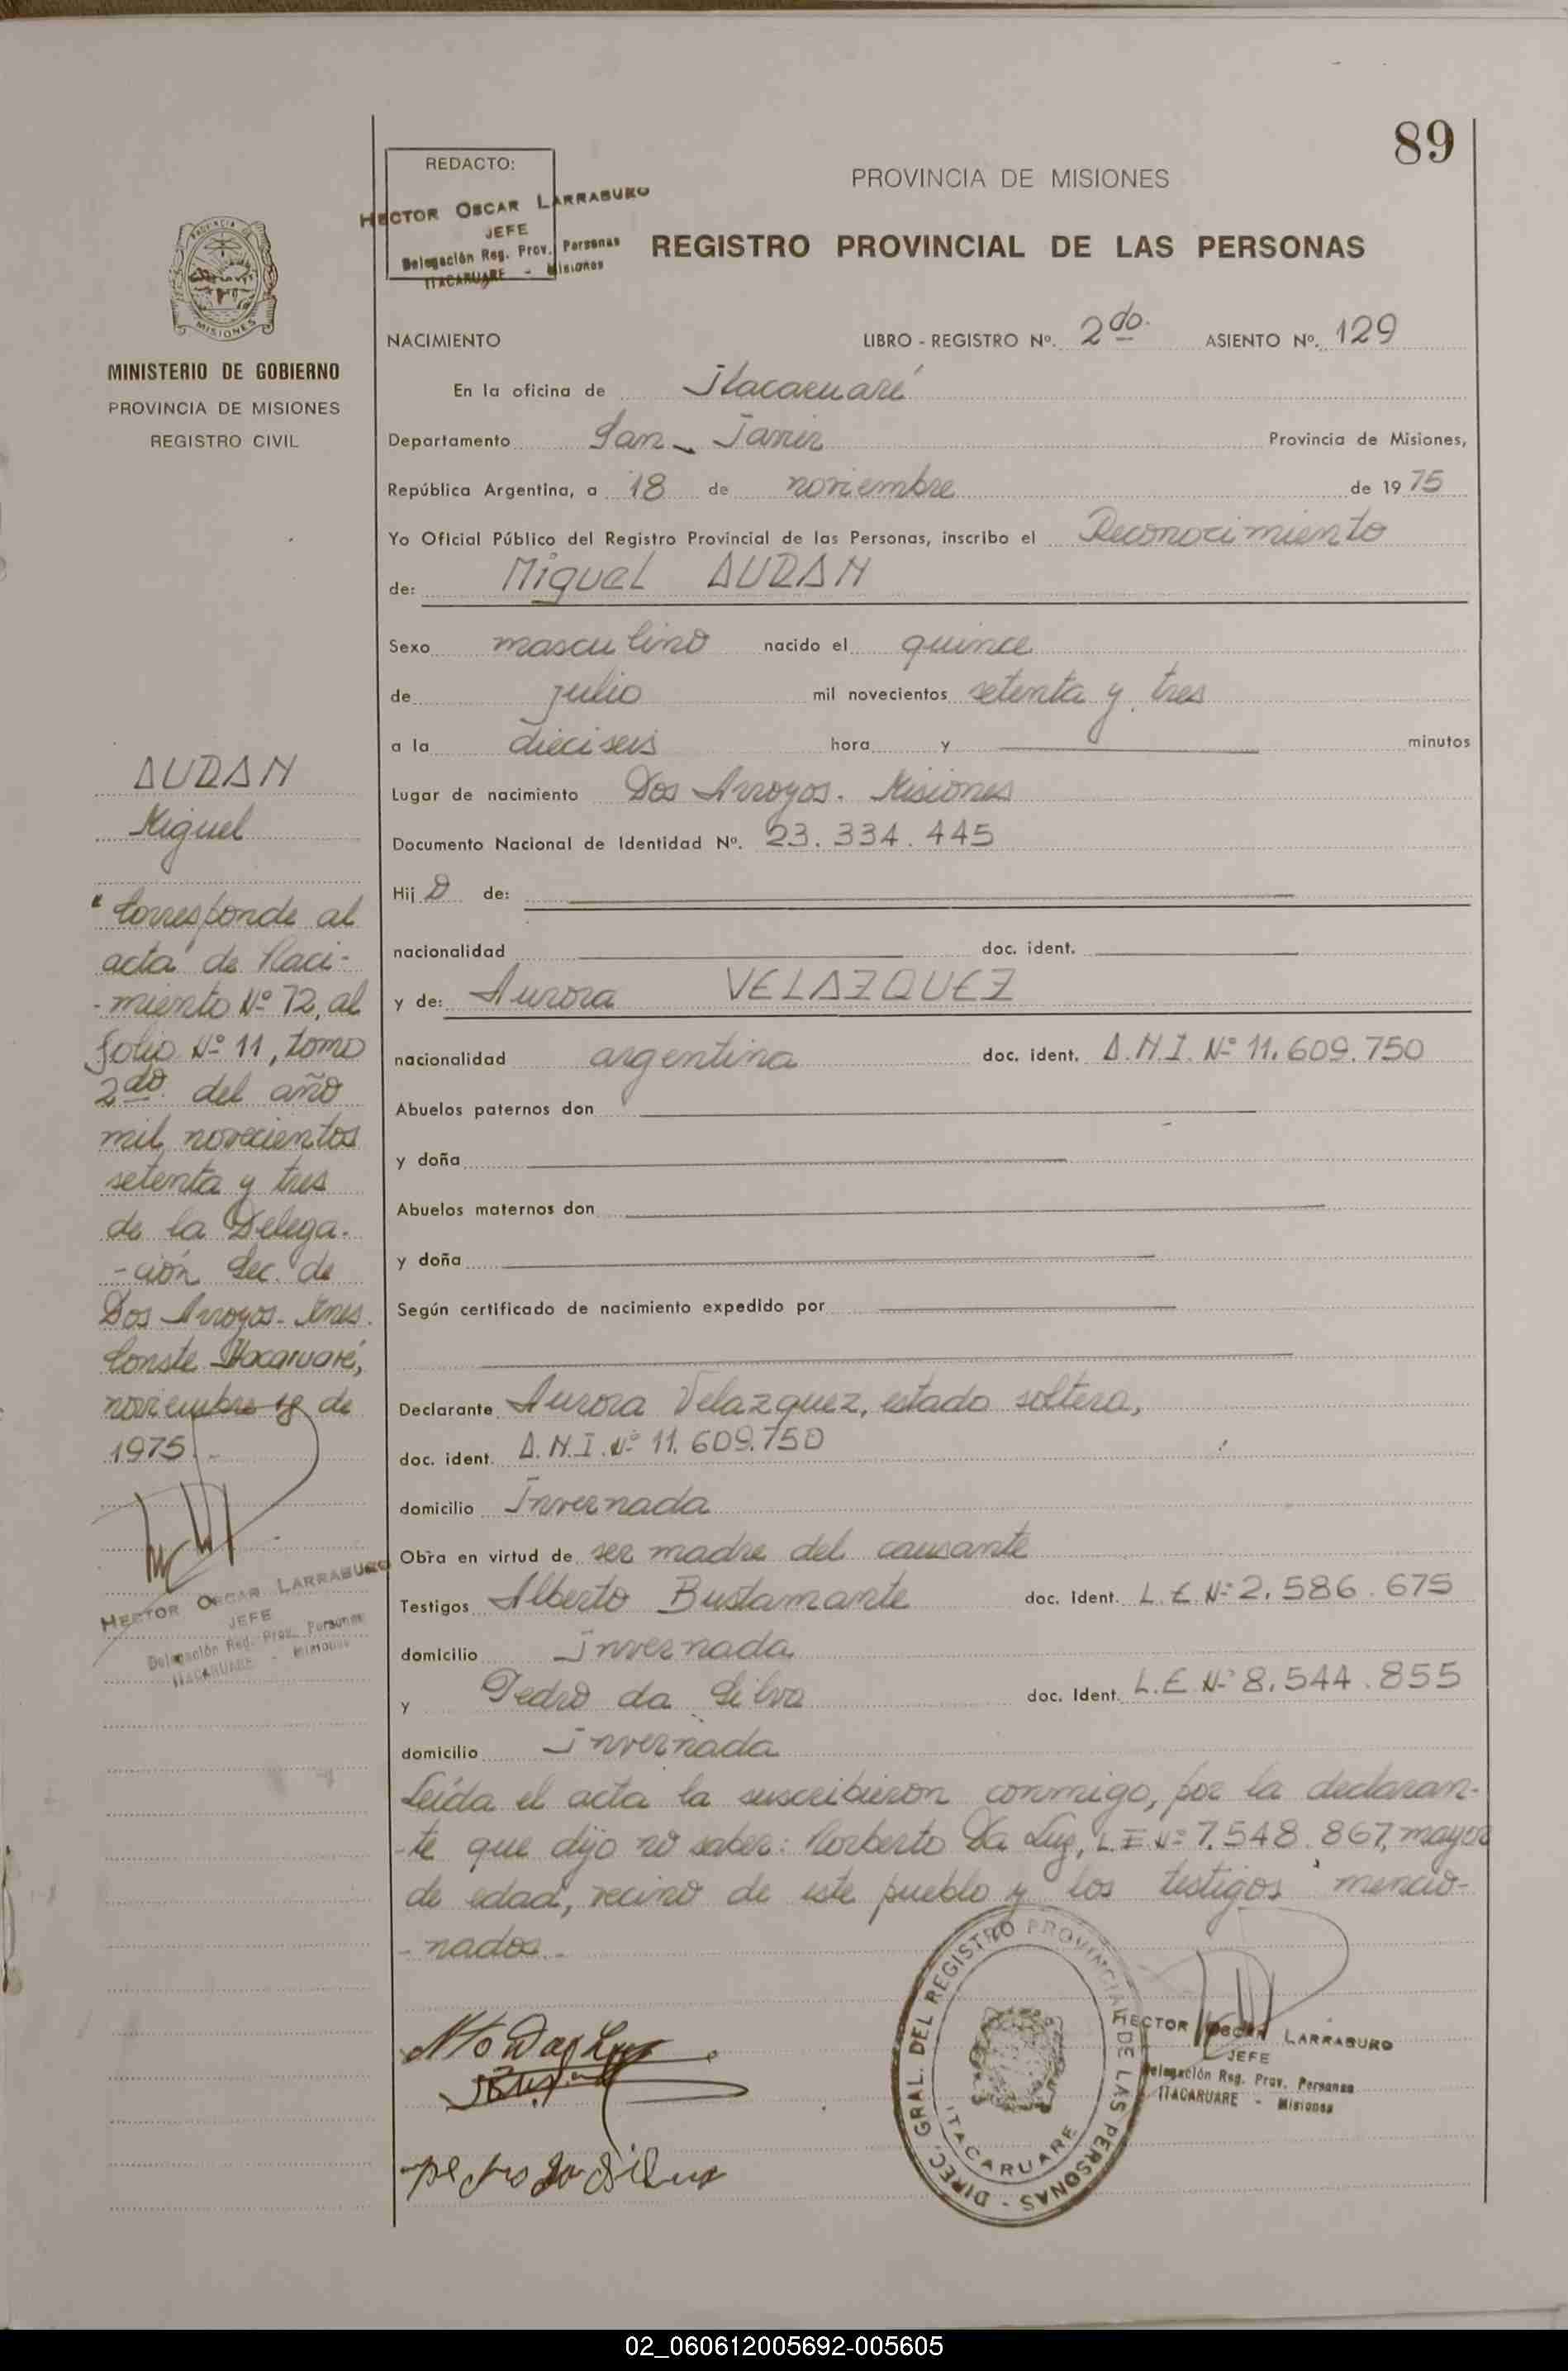 89
REDACTO:
HECTOR OSCAR LARRABURO
JEFE
Delegación Reg. Prov. Personas
ITACARUARE - Misiones
PROVINCIA DE MISIONES
REGISTRO PROVINCIAL DE LAS PERSONAS
MISIONES
MINISTERIO DE GOBIERNO
PROVINCIA DE MISIONES
REGISTRO CIVIL
NACIMIENTO LIBRO - REGISTRO Nº. 2do. ASIENTO Nº. 129
En la oficina de Itacaruaré
Departamento San Javier Provincia de Misiones,
República Argentina, a 18 de noviembre de 1975
Yo Oficial Público del Registro Provincial de las Personas, inscribo el Reconocimiento
de: Miguel DURAN
Sexo masculino nacido el quince
de julio mil novecientos setenta y tres
a la dieciseis hora y minutos
Lugar de nacimiento Dos Arroyos. Misiones
Documento Nacional de Identidad Nº. 23.334.445
Hijo de:
nacionalidad doc. ident.
y de: Aurora VELAZQUEZ
nacionalidad argentina doc. ident. D.N.I. Nº 11.609.750
Abuelos paternos don
y doña
Abuelos maternos don
y doña
Según certificado de nacimiento expedido por
Declarante Aurora Velazquez, estado soltera,
doc. ident. D.N.I. Nº 11.609.750
domicilio Invernada
Obra en virtud de ser madre del causante
Testigos Alberto Bustamante doc. ident. L.E. Nº 2.586.675
domicilio Invernada
y Pedro da Silva doc. ident. L.E. Nº 8.544.855
domicilio Invernada
Leída el acta la suscribieron conmigo, por la declaran-
-te que dijo no saber: Norberto Da Luz, L.E. Nº 7.548.867, mayor
de edad, vecino de este pueblo y los testigos mencio-
-nados.-
DURAN
Miguel
"Corresponde al
acta de Naci-
-miento Nº 72, al
folio Nº 11, tomo
2do. del año
mil novecientos
setenta y tres
de la Delega-
-ción Sec. de
Dos Arroyos- Mnes.
Conste Itacaruaré,
noviembre 18 de
1975.-
HECTOR OSCAR LARRABURO
JEFE
Delegación Reg. Prov. Personas
ITACARUARE - Misiones
pedro da Silva
DIREC. GRAL. DEL REGISTRO PROVINCIAL DE LAS PERSONAS -
ITACARUARE
HECTOR OSCAR LARRABURO
JEFE
Delegación Reg. Prov. Personas
ITACARUARE - Misiones
02_060612005692-005605